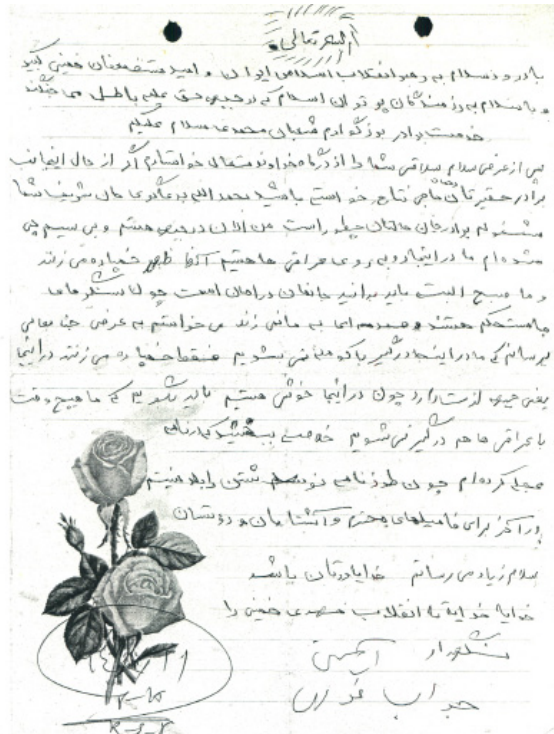 بسمه تعالی
با درود و سلام به رهبر انقلاب اسلامی ایران و امید مستضعفان خمینی کبیر
و با سلام به رزمندگان پر توان اسلام که در جبهه حق علیه باطل می جنگند
خدمت برادر بزرگوارم شعبان محمدی سلام علیکم
پس از عرض سلام سلامتی شما را از درگاه خداوند متعال خواستارم اگر از حال اینجانب
برادر حقیرتان خواسته باشید بحمدالله به دعاگوی جان شریف شما
مشغولم برادر جان حالتان چطور است من الان در جبهه هستم و بی سیم چی
شده ام ما در اینجا روبروی عراقی ها هستیم آنها ظهر خمپاره می زنند
و ما صبح البته باید بدانید جانمان در امان است چون سنگرهای
ما مستحکم هستند و صدمه ای به ما نمی زند می خواستم به عرض جنابعالی
برسانم که ما در اینجا درگیر با کومله نمی شویم فقط خمپاره می زنند در اینجا
یعنی جبهه لذت دارد چون در اینجا خوش هستیم باید بگویم که ما هیچ وقت
با عراقی ها هم درگیر نمی شویم خلاصه ببخشید که در نامه
عجله کرده ام چون طرز نامه نوشتن را بلد نیستم
در آخر برای فامیلهای محترم و آشنایان و دوستان
سلام زیاد می رسانم خدا یاورتان باشد
خدایا خدایا تا انقلاب مهدی خمینی را
نگهدار
جواب فوری